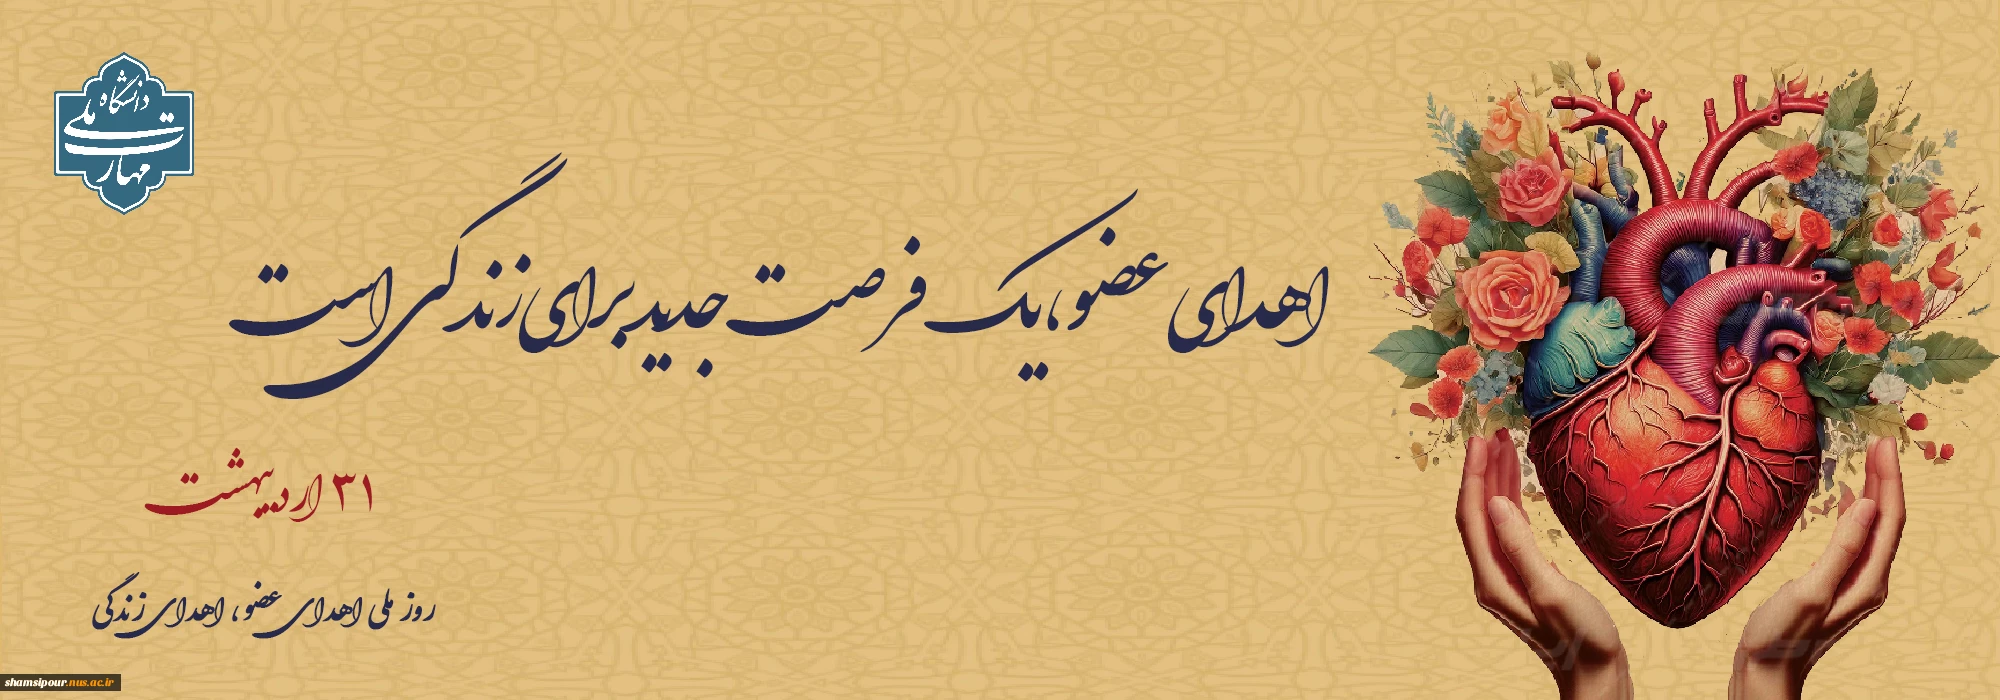 دانشگاه
ملی
مهارت
اهدای عضو، یک فرصت جدید برای زندگی است
۳۱ اردیبهشت
روز ملی اهدای عضو، اهدای زندگی
shamsipour.nus.ac.ir